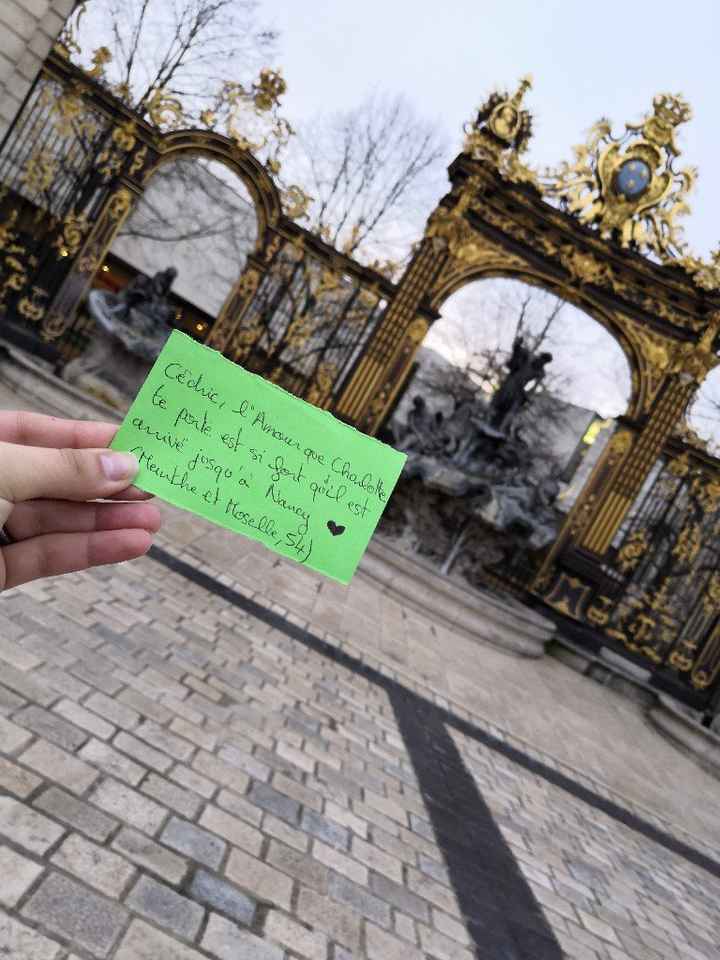 Cédric, l'Amour que Charlotte
te porte est si fort qu'il est
arrivé jusqu'à Nancy
(Meurthe et Moselle, 54)